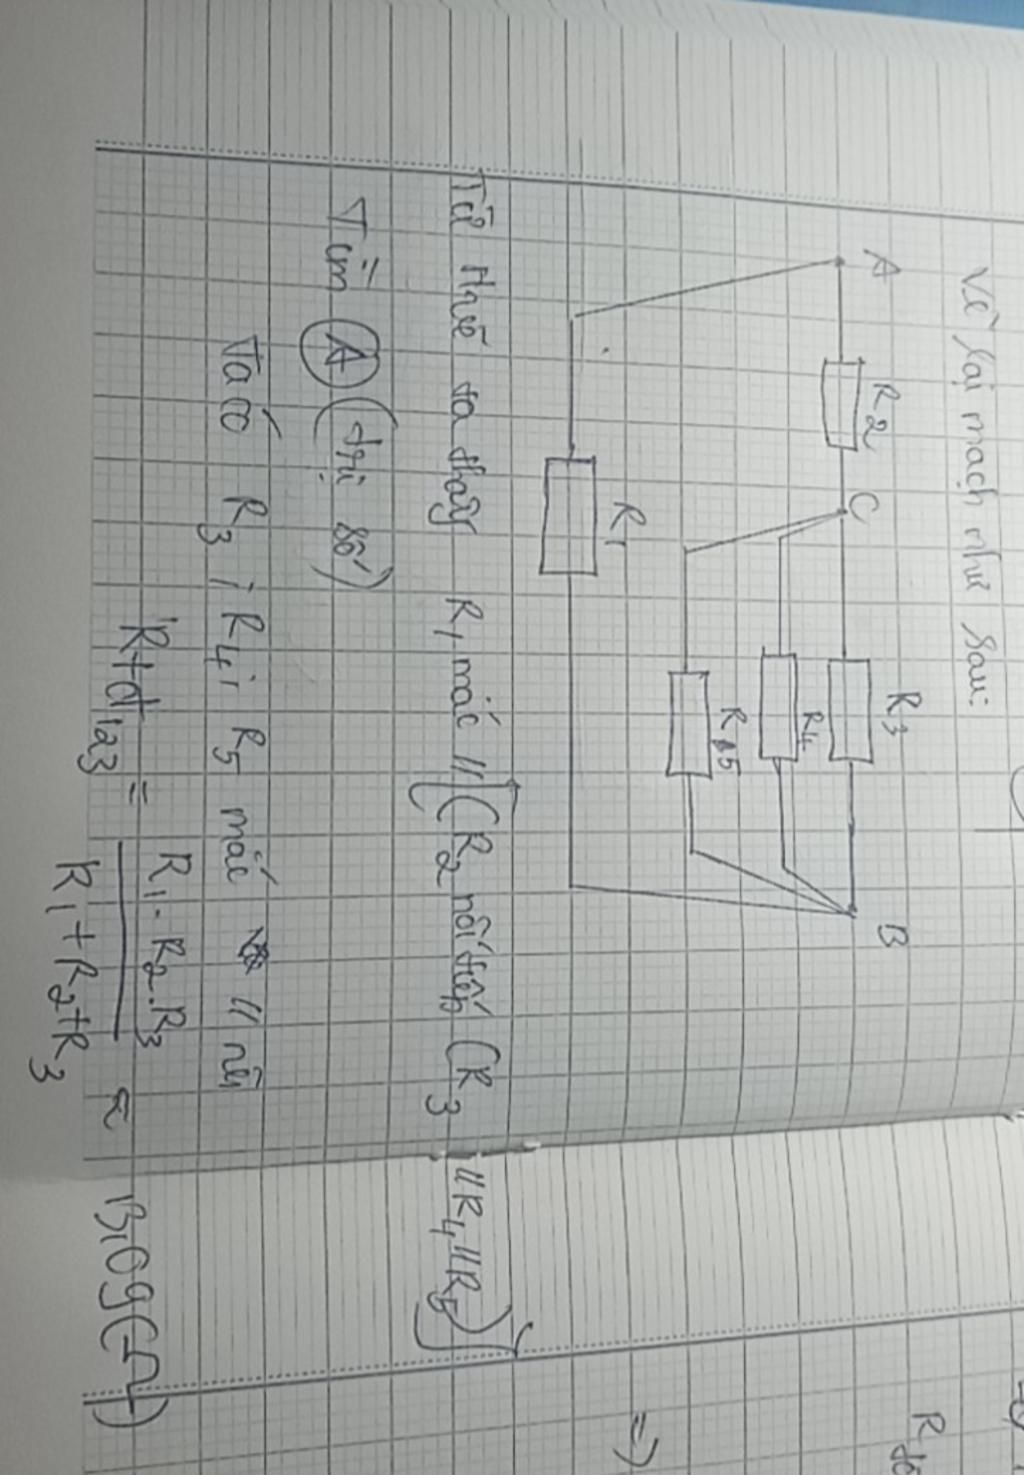 Vẽ lại mạch như sau:
A R2 C R3 B
R4
R5
R1
Từ thấy R1 mắc // (R2 nối tiếp (R3 //R4//R5))
Tìm A (trị số)
Ta có R3; R4; R5 mắc // nên
Rtđ123 = R1.R2.R3 / R1+R2+R3 ≈ (Ω)
⇒